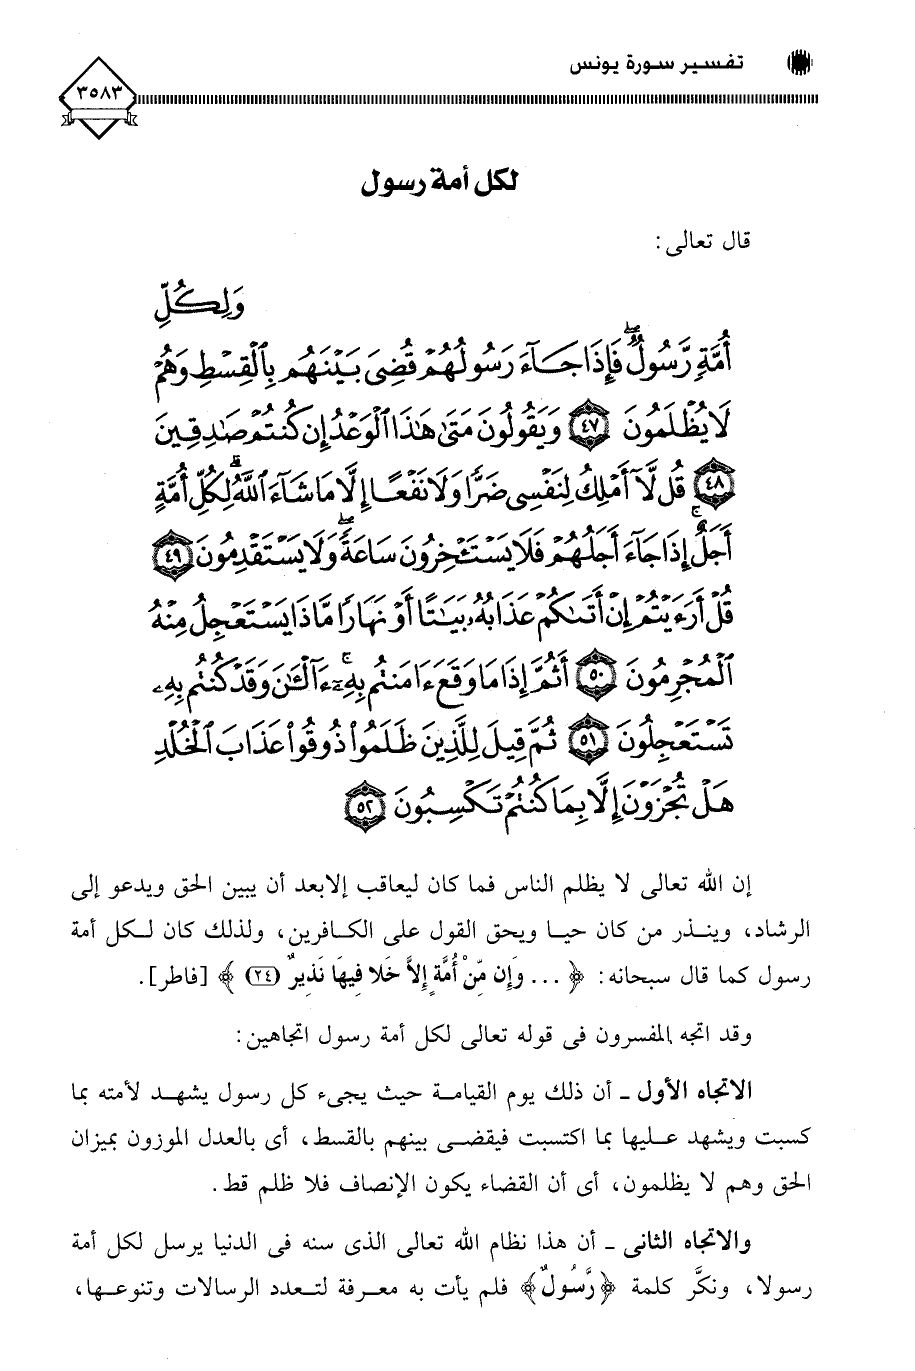 تفسير سورة يونس
٣٥٨٣
لكل أمة رسول
قال تعالى :
وَلِكُلِّ
أُمَّةٍ رَّسُولٌ ۖ فَإِذَا جَآءَ رَسُولُهُمْ قُضِىَ بَيْنَهُم بِٱلْقِسْطِ وَهُمْ
لَا يُظْلَمُونَ ٤٧ وَيَقُولُونَ مَتَىٰ هَٰذَا ٱلْوَعْدُ إِن كُنتُمْ صَٰدِقِينَ
٤٨ قُل لَّآ أَمْلِكُ لِنَفْسِى ضَرًّا وَلَا نَفْعًا إِلَّا مَا شَآءَ ٱللَّهُ ۗ لِكُلِّ أُمَّةٍ
أَجَلٌ ۚ إِذَا جَآءَ أَجَلُهُمْ فَلَا يَسْتَـْٔخِرُونَ سَاعَةً ۖ وَلَا يَسْتَقْدِمُونَ ٤٩
قُلْ أَرَءَيْتُمْ إِنْ أَتَىٰكُمْ عَذَابُهُۥ بَيَٰتًا أَوْ نَهَارًا مَّاذَا يَسْتَعْجِلُ مِنْهُ
ٱلْمُجْرِمُونَ ٥٠ أَثُمَّ إِذَا مَا وَقَعَ ءَامَنتُم بِهِۦٓ ۚ ءَآلْـَٰٔنَ وَقَدْ كُنتُم بِهِۦ
تَسْتَعْجِلُونَ ٥١ ثُمَّ قِيلَ لِلَّذِينَ ظَلَمُوا۟ ذُوقُوا۟ عَذَابَ ٱلْخُلْدِ
هَلْ تُجْزَوْنَ إِلَّا بِمَا كُنتُمْ تَكْسِبُونَ ٥٢
إن الله تعالى لا يظلم الناس فما كان ليعاقب إلابعد أن يبين الحق ويدعو إلى
الرشاد، وينـذر من كان حيـا ويحق القول على الكـافرين، ولذلك كان لـكل أمة
رسول كما قال سبحانه: ﴿ ... وَإِن مِّنْ أُمَّةٍ إِلاَّ خَلا فِيهَا نَذِيرٌ (٢٤) ﴾ [فاطر].
وقد اتجه المفسرون فى قوله تعالى لكل أمة رسول اتجاهين:
الاتجاه الأول ـ أن ذلك يوم القيامـة حيث يجىء كل رسول يشهـد لأمته بما
كسبت ويشهد عـليها بما اكتسبت فيقضـى بينهم بالقسط، أى بالعدل الموزون بميزان
الحق وهم لا يظلمون، أى أن القضاء يكون الإنصاف فلا ظلم قط.
والاتجاه الثانى ـ أن هذا نظام الله تعالى الذى سنه فى الدنيا يرسل لكل أمة
رسولا، ونكَّر كلمة ﴿رَّسُولٌ﴾ فلم يأت به معـرفة لتعـدد الرسالات وتنوعـها،